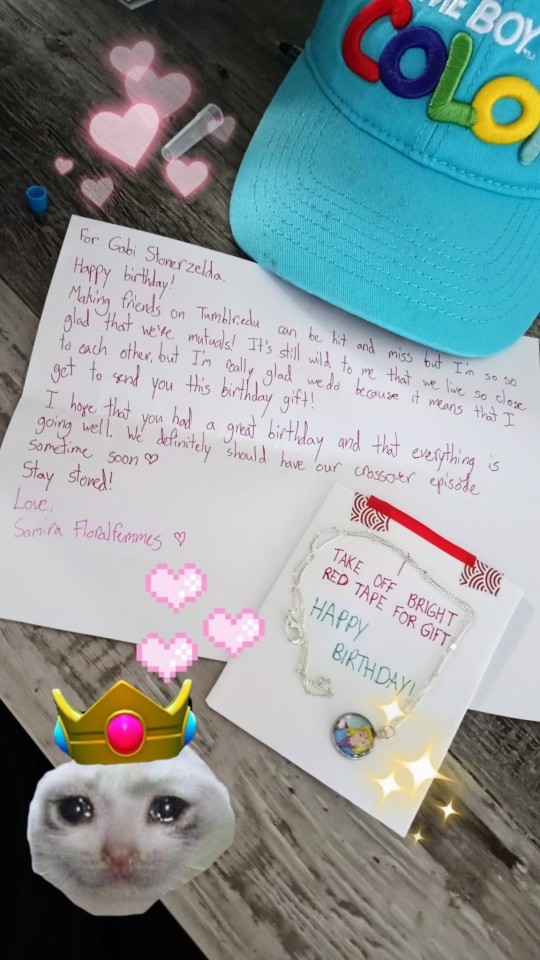 ME BOY
COLO
For Gabi Stonerzelda,
Happy birthday!
Making friends on Tumblr.edu can be hit and miss but I'm so so
glad that we're mutuals! It's still wild to me that we live so close
to each other, but I'm really glad we do because it means that I
get to send you this birthday gift!
I hope that you had a great birthday and that everything is
going well. We definitely should have our crossover episode
sometime soon ♡
Stay stoned!
Love,
Samira Floralfemmes ♡
TAKE OFF BRIGHT
RED TAPE FOR GIFT
HAPPY
BIRTHDAY!